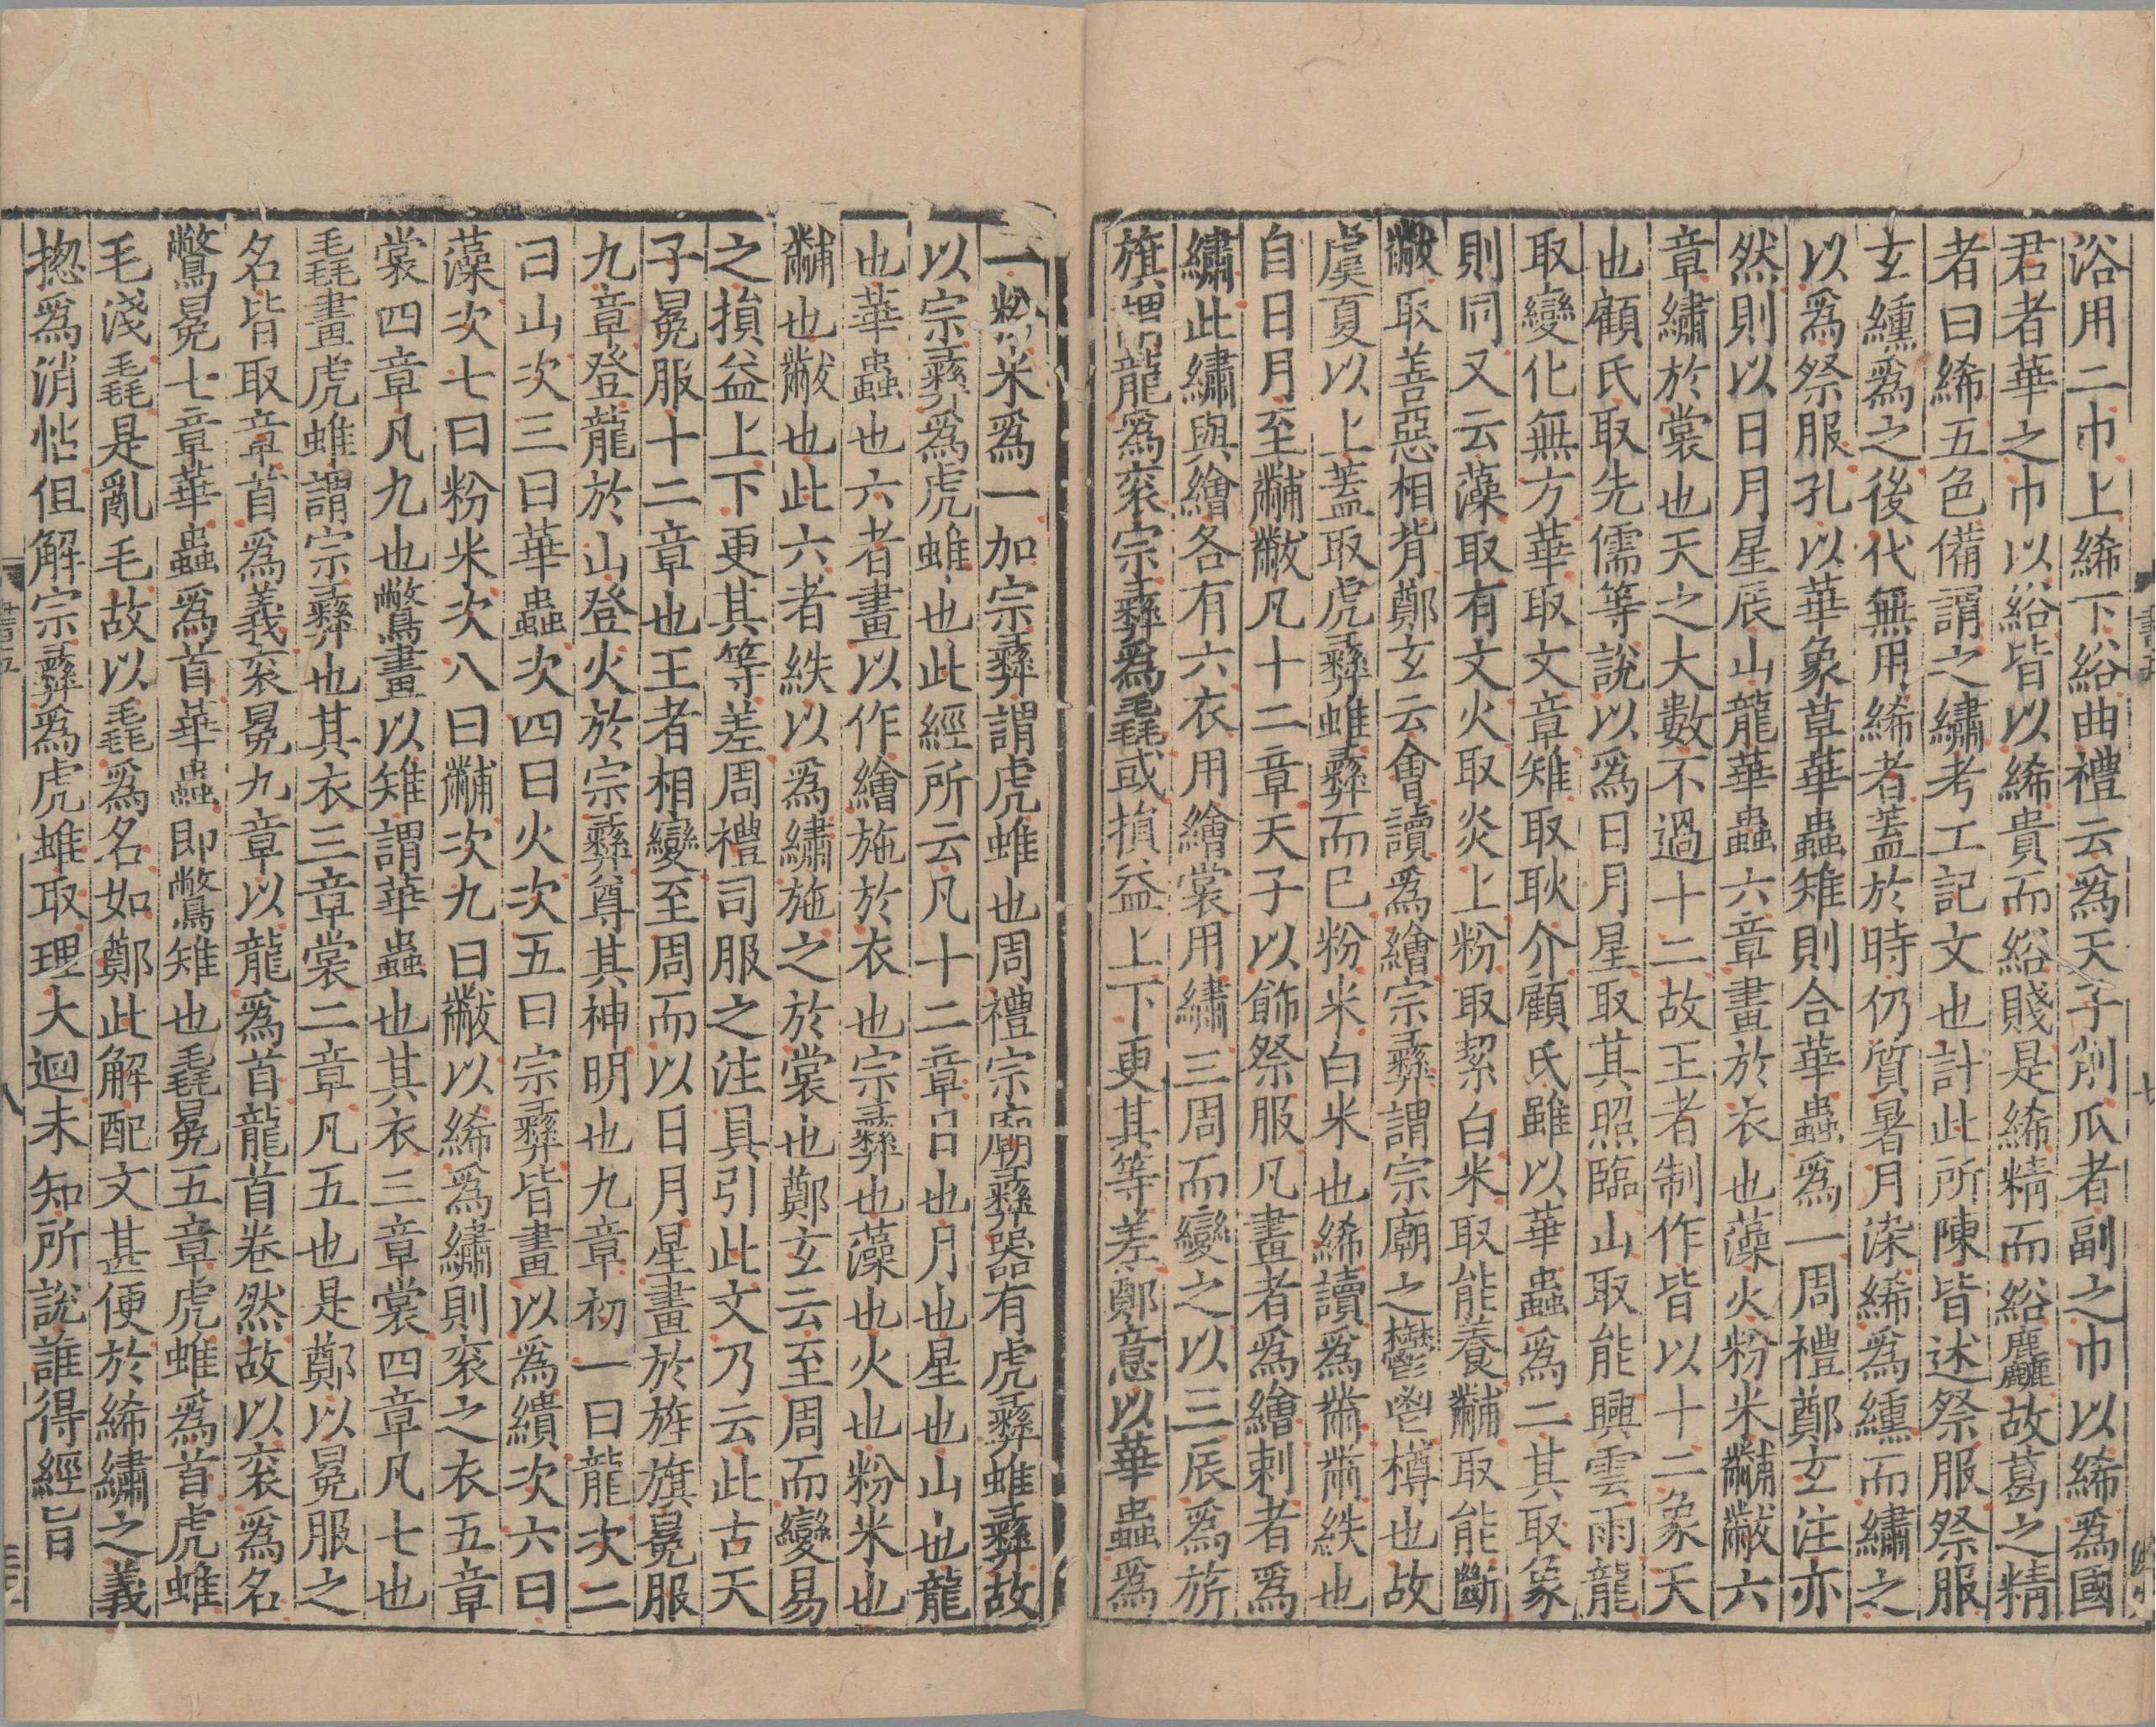 浴用二巾上絺下綌曲禮云爲天子削瓜者副之巾以絺爲國
君者華之巾以綌皆以絺貴而綌賤是絺精而綌麤故葛之精
者曰絺五色備謂之繡考工記文也計此所陳皆述祭服祭服
玄纁爲之後代無用絺者蓋於時仍質暑月染絺爲纁而繡之
以爲祭服孔以華象草華蟲雉則合華蟲爲一周禮鄭玄注亦
然則以日月星辰山龍華蟲六章畫於衣也藻火粉米黼黻六
章繡於裳也天之大數不過十二故王者制作皆以十二象天
也顧氏取先儒等說以爲日月星取其照臨山取能興雲雨龍
取變化無方華取文章雉取耿介顧氏雖以華蟲爲二其取象
則同又云藻取有文火取炎上粉取絜白米取能養黼取能斷
黻取善惡相背鄭玄云會讀爲繪宗彝謂宗廟之鬱鬯樽也故
虞夏以上蓋取虎彝蜼彝而已粉米白米也絺讀爲黹黹紩也
自日月至黼黻凡十二章天子以飾祭服凡畫者爲繪刺者爲
繡此繡與繪各有六衣用繪裳用繡三周而變之以三辰爲旂
旗謂龍爲衮宗彝爲毳或損益上下更其等差鄭意以華蟲爲
一粉米爲一加宗彝謂虎蜼也周禮宗廟彝器有虎彝蜼彝故
以宗彝爲虎蜼也此經所云凡十二章日也月也星也山也龍
也華蟲也六者畫以作繪施於衣也宗彝也藻也火也粉米也
黼也黻也此六者紩以爲繡施之於裳也鄭玄云至周而變易
之損益上下更其等差周禮司服之注具引此文乃云此古天
子冕服十二章也王者相變至周而以日月星畫於旌旗冕服
九章登龍於山登火於宗彝尊其神明也九章初一曰龍次二
曰山次三曰華蟲次四曰火次五曰宗彝皆畫以爲繢次六曰
藻次七曰粉米次八曰黼次九曰黻以絺爲繡則衮之衣五章
裳四章凡九也鷩畫以雉謂華蟲也其衣三章裳四章凡七也
毳畫虎蜼謂宗彝也其衣三章裳二章凡五也是鄭以冕服之
名皆取章首爲義衮冕九章以龍爲首龍首卷然故以衮爲名
鷩冕七章華蟲爲首華蟲即鷩雉也毳冕五章虎蜼爲首虎蜼
毛淺毳是亂毛故以毳爲名如鄭此解配文甚便於絺繡之義
揔爲消帖但解宗彝爲虎蜼取理大迴未知所說誰得經旨